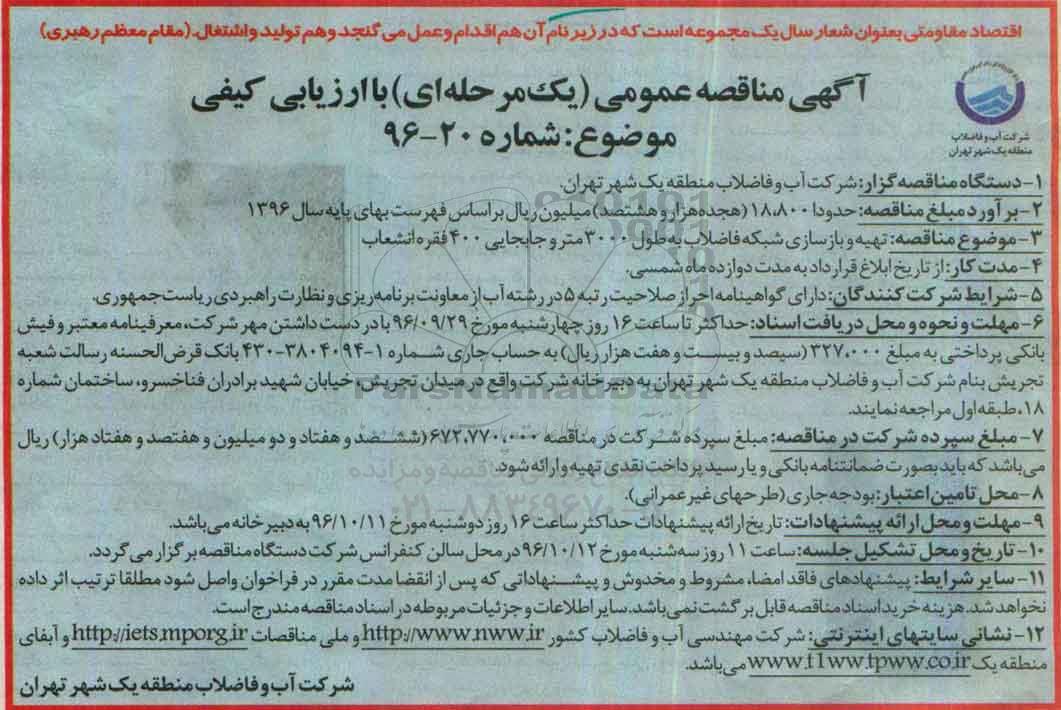 اقتصاد مقاومتی بعنوان شعار سال یک مجموعه است که در زیر نام آن هم اقدام و عمل می گنجد و هم تولید و اشتغال. (مقام معظم رهبری)
آگهی مناقصه عمومی (یک مرحله‌ای) با ارزیابی کیفی
موضوع: شماره ۲۰-۹۶
شرکت آب و فاضلاب
منطقه یک شهر تهران
۱- دستگاه مناقصه گزار: شرکت آب و فاضلاب منطقه یک شهر تهران.
۲- برآورد مبلغ مناقصه: حدودا ۱۸،۸۰۰ (هجده هزار و هشتصد) میلیون ریال براساس فهرست بهای پایه سال ۱۳۹۶
۳- موضوع مناقصه: تهیه و بازسازی شبکه فاضلاب به طول ۳۰۰۰ متر و جابجایی ۴۰۰ فقره انشعاب
۴- مدت کار: از تاریخ ابلاغ قرارداد به مدت دوازده ماه شمسی.
۵- شرایط شرکت کنندگان: دارای گواهینامه احراز صلاحیت رتبه ۵ در رشته آب از معاونت برنامه‌ریزی و نظارت راهبردی ریاست جمهوری.
۶- مهلت و نحوه و محل دریافت اسناد: حداکثر تا ساعت ۱۶ روز چهارشنبه مورخ ۹۶/۰۹/۲۹ با در دست داشتن مهر شرکت، معرفینامه معتبر و فیش
بانکی پرداختی به مبلغ ۳۲۷،۰۰۰ (سیصد و بیست و هفت هزار ریال) به حساب جاری شماره ۱-۴۳۰-۳۸۰۴۰۹۴ بانک قرض‌الحسنه رسالت شعبه
تجریش بنام شرکت آب و فاضلاب منطقه یک شهر تهران به دبیرخانه شرکت واقع در میدان تجریش، خیابان شهید برادران فناخسرو، ساختمان شماره
۱۸، طبقه اول مراجعه نمایند.
۷- مبلغ سپرده شرکت در مناقصه: مبلغ سپرده شرکت در مناقصه ۶۷۲،۷۷۰،۰۰۰ (ششصد و هفتاد و دو میلیون و هفتصد و هفتاد هزار) ریال
می‌باشد که باید بصورت ضمانتنامه بانکی و یا رسید پرداخت نقدی تهیه و ارائه شود.
۸- محل تامین اعتبار: بودجه جاری (طرحهای غیر عمرانی).
۹- مهلت و محل ارائه پیشنهادات: تاریخ ارائه پیشنهادات حداکثر ساعت ۱۶ روز دوشنبه مورخ ۹۶/۱۰/۱۱ به دبیرخانه می‌باشد.
۱۰- تاریخ و محل تشکیل جلسه: ساعت ۱۱ روز سه شنبه مورخ ۹۶/۱۰/۱۲ در محل سالن کنفرانس شرکت دستگاه مناقصه برگزار می گردد.
۱۱- سایر شرایط: پیشنهادهای فاقد امضا، مشروط و مخدوش و پیشنهاداتی که پس از انقضا مدت مقرر در فراخوان واصل شود مطلقا ترتیب اثر داده
نخواهد شد. هزینه خرید اسناد مناقصه قابل برگشت نمی‌باشد. سایر اطلاعات و جزئیات مربوطه در اسناد مناقصه مندرج است.
۱۲- نشانی سایتهای اینترنتی: شرکت مهندسی آب و فاضلاب کشور http://www.nww.ir و ملی مناقصات http://iets.mporg.ir و آبفای
منطقه یک www.t1ww.tpww.co.ir می‌باشد.
شرکت آب و فاضلاب منطقه یک شهر تهران
ParsNamadData
۰۲۱-۸۸۳۴۹۶۷۰